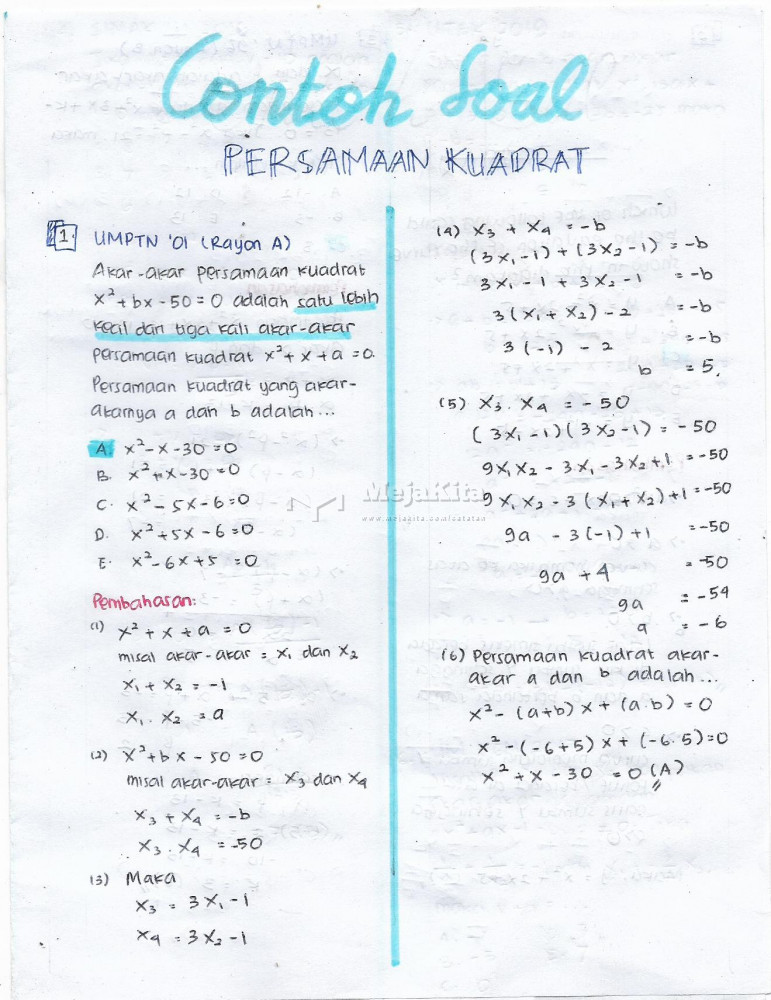 Contoh Soal
PERSAMAAN KUADRAT
1. UMPTN '01 (Rayon A)
Akar-akar persamaan kuadrat
x² + bx - 50 = 0 adalah satu lebih
kecil dari tiga kali akar-akar
persamaan kuadrat x² + x + a = 0.
Persamaan kuadrat yang akar-
akarnya a dan b adalah ...
A. x² - x - 30 = 0
B. x² + x - 30 = 0
C. x² - 5x - 6 = 0
D. x² + 5x - 6 = 0
E. x² - 6x + 5 = 0
Pembahasan:
(1) x² + x + a = 0
misal akar-akar = x₁ dan x₂
x₁ + x₂ = -1
x₁ . x₂ = a
(2) x² + bx - 50 = 0
misal akar-akar = x₃ dan x₄
x₃ + x₄ = -b
x₃ . x₄ = -50
(3) Maka
x₃ = 3x₁ - 1
x₄ = 3x₂ - 1
(4) x₃ + x₄ = -b
(3x₁ - 1) + (3x₂ - 1) = -b
3x₁ - 1 + 3x₂ - 1 = -b
3(x₁ + x₂) - 2 = -b
3(-1) - 2 = -b
b = 5.
(5) x₃ . x₄ = -50
(3x₁ - 1)(3x₂ - 1) = -50
9x₁x₂ - 3x₁ - 3x₂ + 1 = -50
9x₁x₂ - 3(x₁ + x₂) + 1 = -50
9a - 3(-1) + 1 = -50
9a + 4 = -50
9a = -54
a = -6
(6) Persamaan kuadrat akar-
akar a dan b adalah ...
x² - (a+b)x + (a.b) = 0
x² - (-6+5)x + (-6.5) = 0
x² + x - 30 = 0 (A)
MejaKita
www.mejakita.com/catatan